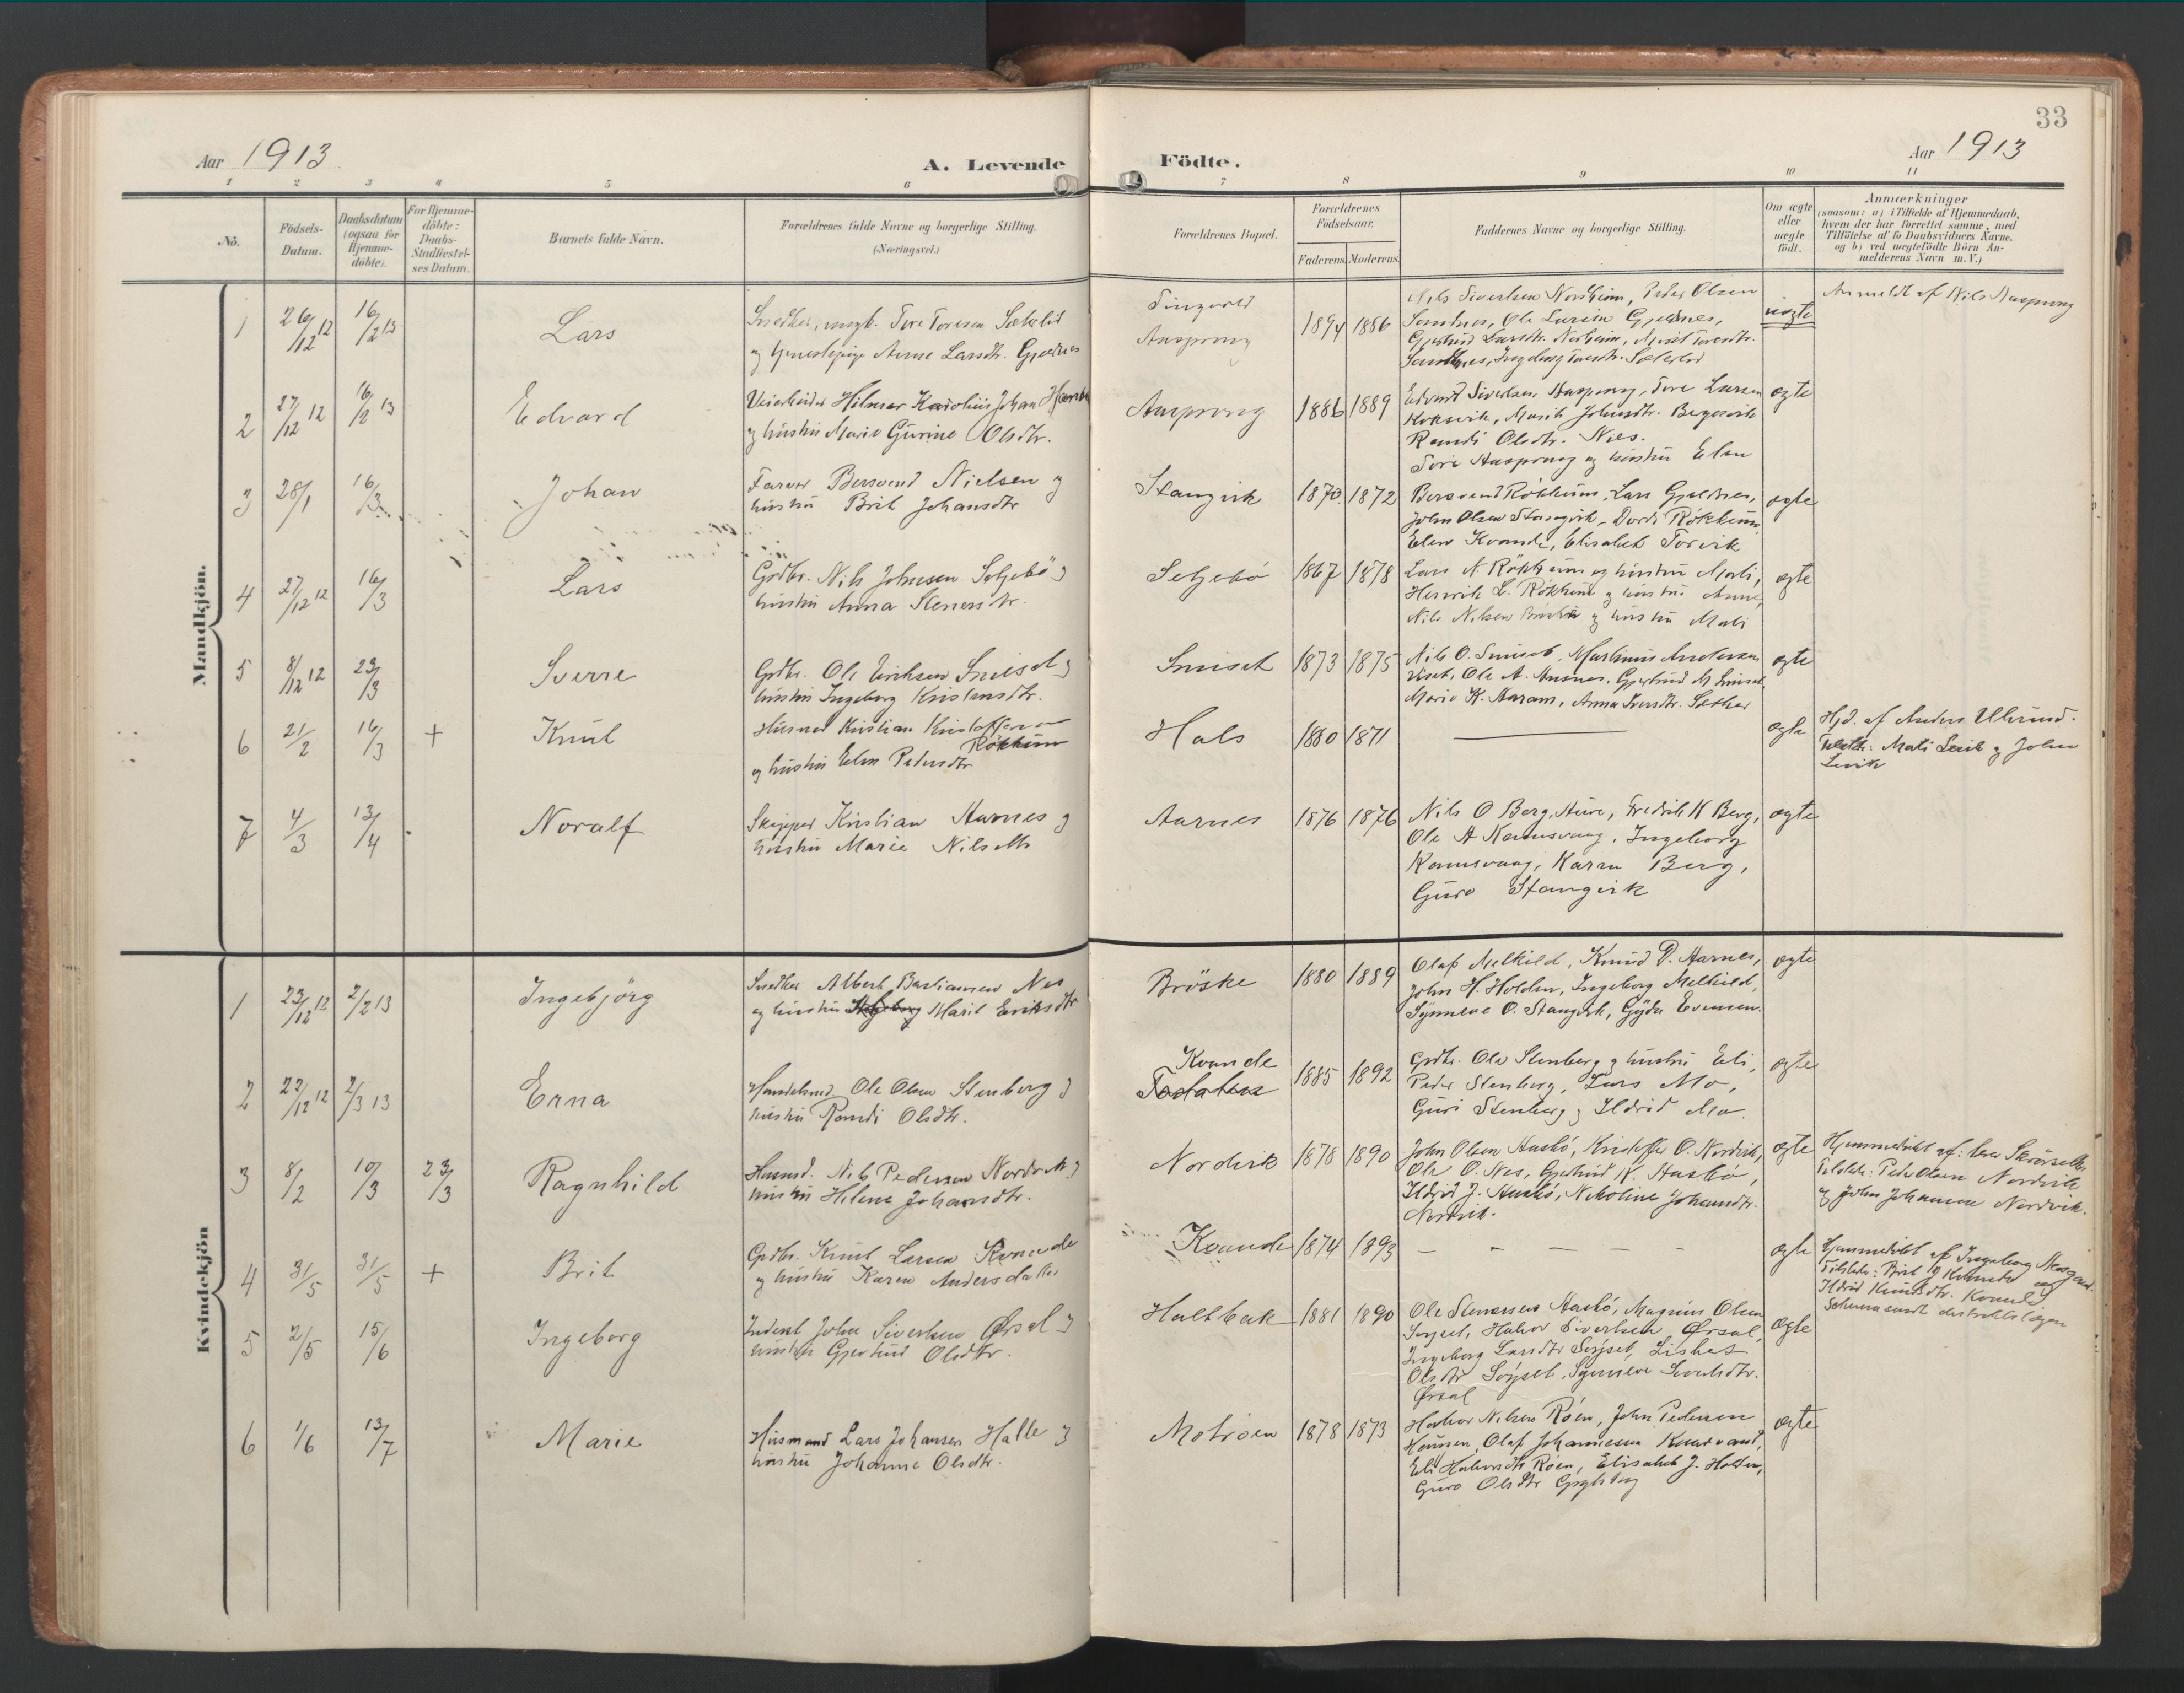 33
Aar 1913
A. Levende
Födte.
Aar 1913
1 2 3 4 5 6 7 8 9 10 11
No.
Födsels-
Datum.
Daabsdatum
(ogsaa for
Hjemme-
döbte).
For Hjemme-
döbte:
Daabs-
Stadfæstel-
ses Datum.
Barnets fulde Navn.
Forældrenes fulde Navne og borgerlige Stilling.
(Næringsvei.)
Forældrenes Bopæl.
Forældrenes
Födselsaar.
Faderens. Moderens.
Faddernes Navne og borgerlige Stilling.
Om ægte
eller
uægte
födt.
Anmærkninger
(saasom: a) i Tilfælde af Hjemmedaab,
hvem der har forrettet samme, med
Tilföielse af to Daabsvidners Navne,
og b) ved uegtefödte Börn An-
melderens Navn m. V.)
Mandkjön.
1 26/12 12 16/2 13 Lars
Snedker, ungk. Tore Toresen
og Anne Larsdtr. Gjeldnes
Tingvold
Aasprong
1894 1886
Nils Sivertsen Nordheim, Peder Olsen
Sandnes, Ole Larsen Gjeldnes,
Gjertrud Larsdtr.
Sandnes, Ingeborg Toresdtr.
uægte
Anmeldt af Nils Aasprong
2 27/12 12 16/2 13 Edvard
Veiarbeider Hilmar Karolius Johan
og hustru Marie Gurine Olsdtr.
Aasprong
1886 1889
Edvard Sivertsen Aasprong, Tore Larsen
Koksvik, Marit Johnsdtr.
Randi Olsdtr. Nes.
ægte
3 28/1 16/3 Johan
Farver Bersvend Nielsen og
hustru Brit Johansdtr
Stangvik
1870 1872
Tore Aasprong og hustru Elen
Bersvend Rökkum, Lars Gjeldnes,
John Olsen Stangvik, Dordi Rökkum
Elen Kvande, Elisabet Torvik
ægte
4 27/12 12 16/3 Lars
Grdbr. Nils Johnsen Seljebö og
hustru Anna Stenersdtr.
Seljebö
1867 1878
Lars N. Rökkum og hustru Mali,
Henrik L. Rökkum og hustru Anne,
Nils Nilsen Bröske og hustru Mali
ægte
5 8/12 12 23/3 Sverre
Grdbr. Ole Eriksen Sniset og
hustru Ingeborg Kristensdtr.
Sniset
1873 1875
Nils O. Sniset, Martinus Andersen
Ole A. Husnes, Gjertrud M Sniset
Marie K. Aaram, Anna Iversdtr. Sæther
ægte
6 21/2 16/3 + Knut
Husmd Kristian Kristoffersen
Rökkum
og hustru Elen Pedersdtr
Hals
1880 1871
ægte
Hj.d. af Anders Ulvund.
Mali Levik og John
Levik
7 4/3 13/4 Noralf
Skipper Kristian Aarnes og
hustru Marie Nilsdtr
Aarnes
1876 1876
Nils O Berg, Aure, Fredrik K Berg,
Ole A Ramsvaag, Ingeborg
Ramsvaag, Karen Berg,
Guro Stangvik
ægte
Kvindekjön
1 23/12 12 2/2 13 Ingebjörg
Snedker Albert Bastiansen Nes
og hustru Marit Eriksdtr
Bröske
1880 1889
Olaf Melkild, Knud P. Aarnes,
John H. Holden, Ingeborg Melkild,
Synneve O. Stangvik, Gyda Evensen.
ægte
2 22/12 12 2/3 13 Erna
Handelsmd Ole Olsen Stenberg og
hustru Randi Olsdtr.
Kvande
Todalen
1885 1892
Grdbr. Ole Stenberg og hustru Eli,
Peder Stenberg, Lars Mo,
Guri Stenberg og Ildrid Mo
ægte
3 8/2 10/3 23/3 Ragnhild
Husmd. Nils Pedersen Nordvik og
hustru Helene Johansdtr.
Nordvik
1878 1890
John Olsen Husbö, Kristoffer O. Nordvik,
Ole O. Nes, Gjertrud K. Husbö,
Ildrid J. Husbö, Nikoline Johansdtr.
Nordvik.
ægte
Hjemmedöbt af: lærer
Tilstede: Peder Olsen Nordvik
og John Johansen Nordvik.
4 31/5 31/5 + Brit
Grdbr. Knut Larsen Kvande
og hustru Karen Andersdatter
Kvande
1874 1893
– – – – – –
ægte
Hjemmedöbt af Ingeborg
Tilstede: Brit Kvande og
Ildrid Knudsdtr. Kvande
5 2/5 15/6 Ingeborg
Inderst John Sivertsen Ørsal og
hustru Gjertrud Olsdtr.
Haltbak
1881 1890
Ole Stenersen Husbö, Magnus Olsen
Söyset, Halvor Sivertsen Ørsal,
Ingeborg Larsdtr Söyset, Lisbet
Olsdtr Söyset, Synneve Sivertsdtr.
Ørsal
ægte
6 1/6 13/7 Marie
Husmand Lars Johansen Halle og
hustru Johanne Olsdtr.
Motröen
1878 1873
Halvor Nilsen Röen, John Pedersen
Hansen, Olaf Johannesen
Eli Halvorsdtr Röen, Elisabet J. Holten,
Guro Olsdtr
ægte